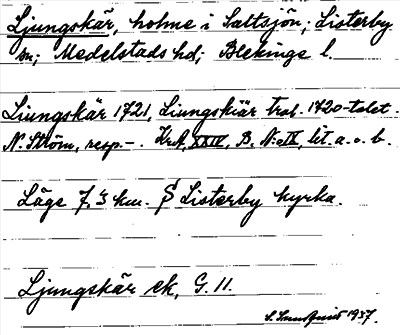 Ljungskär, holme i Saltsjön, Listerby
sn; Medelstads hd; Blekinge l.
Liungskär 1721, Liungskiär trol. 1720-talet.
N. Ström, resp.-. KrA, XXIV, B. N:o IX, lit. a. o. b.
Läge 7,3 km. S Listerby kyrka.
Ljungskär ek, G. 11.
1937.